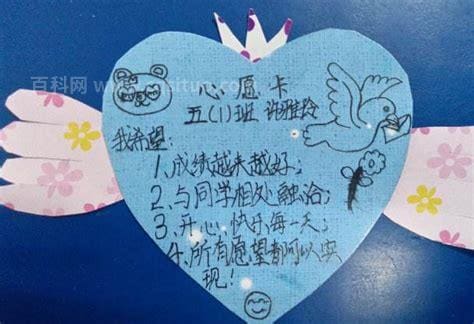 心愿卡
五(1)班 许雅玲
我希望:
1、成绩越来越好;
2、与同学相处融洽;
3、开心快乐每一天;
4、所有愿望都可以实
现!
百科网